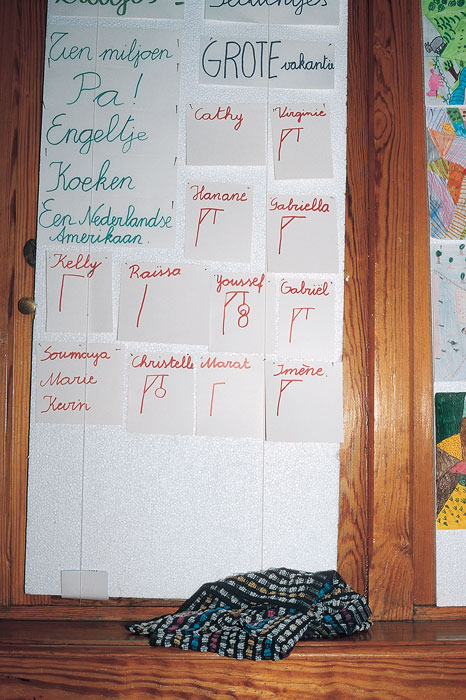 Tien miljoen
Pa!
Engeltje
Koeken
Een Nederlandse
Amerikaan.
GROTE vakantie
Cathy
Virginie
Hanane
Gabriella
Kelly
Raïssa
Youssef
Gabriël
Soumaya
Marie
Kevin
Christelle
Marat
Imène.